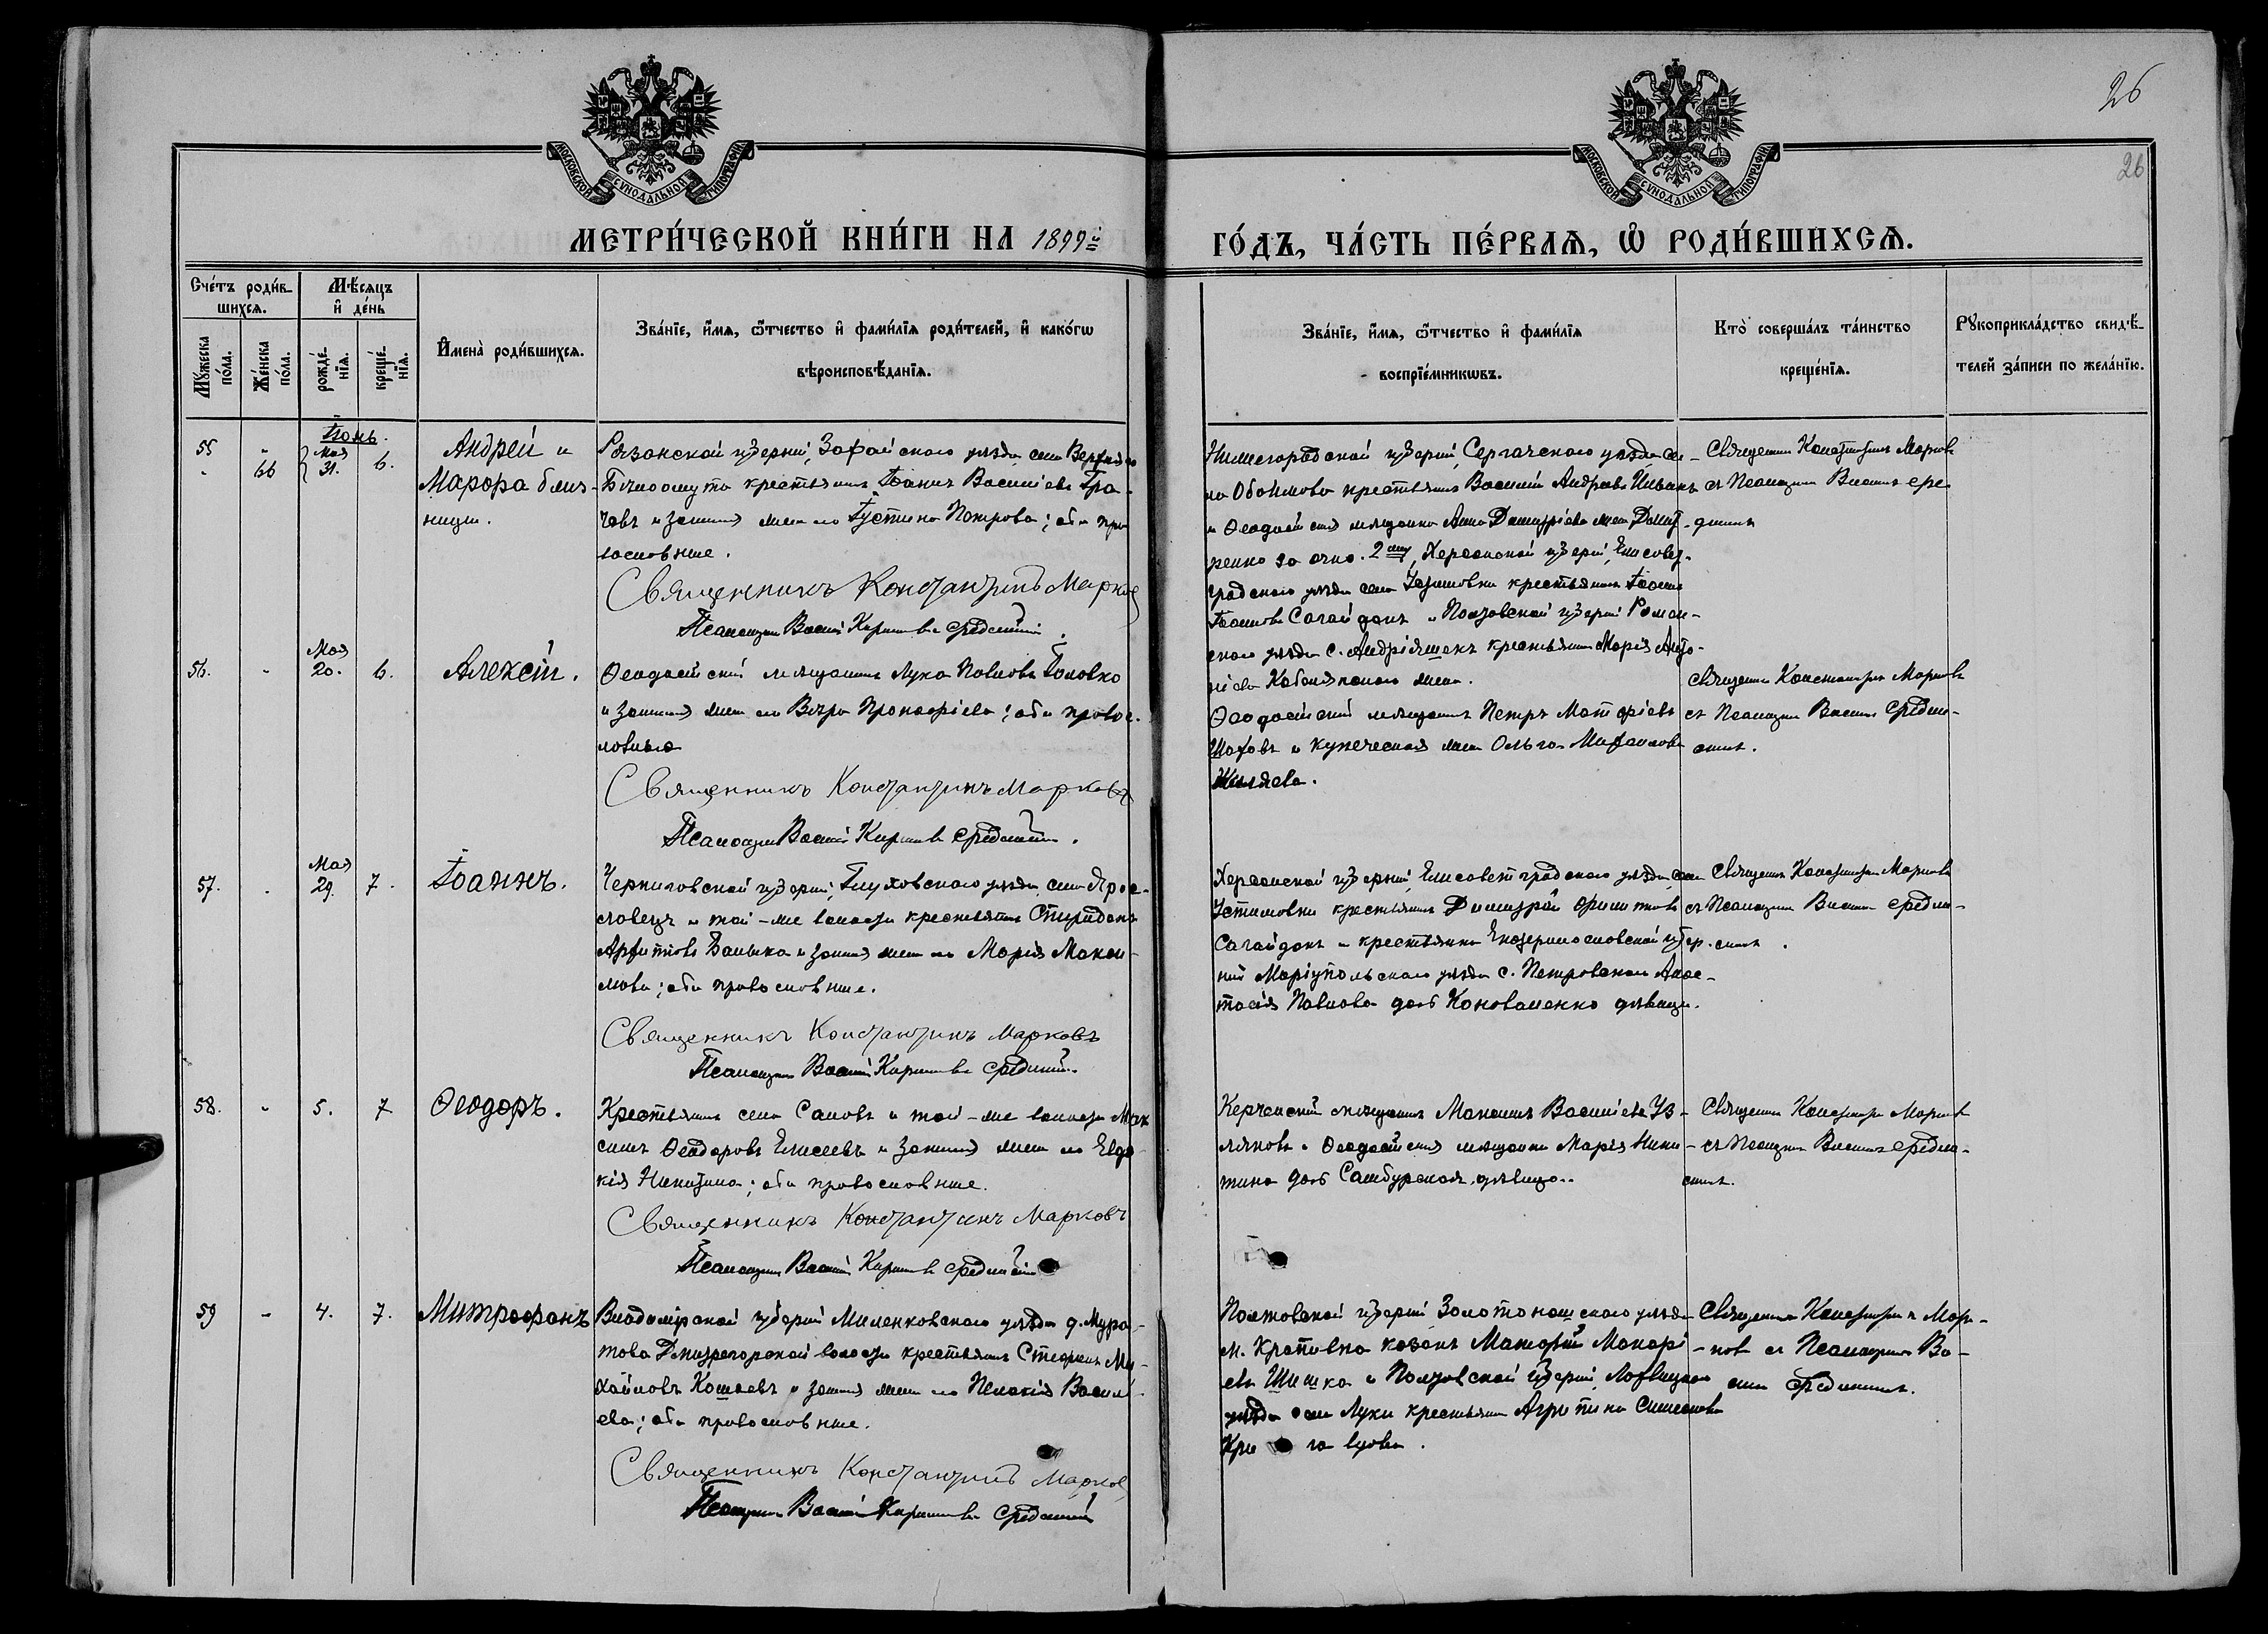 26
26
МОСКОВСКОЙ СѴНОДАЛЬНОЙ ТИПОГРАФІИ
МОСКОВСКОЙ СѴНОДАЛЬНОЙ ТИПОГРАФІИ
МЕТРИ́ЧЕСКОЙ КНИ́ГИ НА 1899й
ГО́ДЪ, ЧА́СТЬ ПЕ́РВАѦ, Ѡ҆ РОДИ́ВШИХСѦ.
Сче́тъ роди́в-
шихсѧ.
Мѣ́сѧцъ
и҆ де́нь
Мꙋ́жеска
по́ла.
Же́нска
по́ла.
рожде́-
нїѧ.
креще́-
нїѧ.
И҆мена̀ роди́вшихсѧ.
Зва́нїе, и҆́мѧ, ѻ҆́тчество и҆ фами́лїѧ роди́телей, и҆ како́гѡ
вѣроисповѣ́данїѧ.
Зва́нїе, и҆́мѧ, ѻ҆́тчество и҆ фами́лїѧ
воспрїе́мникѡвъ.
Кто̀ соверша́лъ та́инство
креще́нїѧ.
Рꙋкоприкла́дство свидѣ́-
телей за́писи по жела́нїю.
Іюнь.
55 " Мая 6. Андрей и
" 66 31. Марфа близ-
ницы.
Рязанской губерніи, Зарайскаго уѣзда села
крестьянинъ Іоаннъ Васильевъ Гра-
човъ и законная жена его Іустина Петрова; оба пра-
вославные.
Священникъ Константинъ Марковъ
Псаломщикъ Василій Срединскій.
Нижегородской губерніи, Сергачскаго уѣзда се-
ла крестьянинъ Василій Андреевъ
и Ѳеодосійская мѣщанка Анна Димитріева
2му, Херсонской губерніи, Елисавет-
градскаго уѣзда села Устимовки крестьянинъ Іоаннъ
Іоанновъ Сагайдакъ и Полтавской губерніи Ромен-
скаго уѣзда с. Андріяшекъ крестьянка Марія
жена.
Священникъ Константинъ Марковъ
съ Псаломщикомъ Василіемъ Сре-
динскимъ
56. " Мая 20. 6. Алексій.
Ѳеодосійскій мѣщанинъ Лука Павловъ Головко
и законная жена его Вѣра Прокофіева; оба право-
славные
Священникъ Константинъ Марковъ
Псаломщикъ Василій Срединскій.
Ѳеодосійскій мѣщанинъ Петръ Матфіевъ
Шаховъ и купеческая жена Ольга Михаилова
Священникъ Константинъ Марковъ
съ Псаломщикомъ Василіемъ Средин-
скимъ.
57. " Мая 29. 7. Іоаннъ.
Черниговской губерніи, Глуховскаго уѣзда села Яро-
славецъ и той-же волости крестьянинъ Спиридонъ
и законная жена его Марія Макси-
мова; оба православные.
Священникъ Константинъ Марковъ
Псаломщикъ Василій Срединскій.
Херсонской губерніи, Елисаветградскаго уѣзда, села
Устимовки крестьянинъ Димитрій Филиповъ
Сагайдакъ и крестьянка Екатеринославской губер-
ніи Маріупольскаго уѣзда с. Петровскаго Анас-
тасія Павлова дочь Коноваленко дѣвица.
Священникъ Константинъ Марковъ
съ Псаломщикомъ Василіемъ Средин-
скимъ.
58. " 5. 7 Ѳеодоръ.
Крестьянинъ села Саловъ и той-же волости Мак-
симъ Ѳеодоровъ Елисеевъ и законная жена его Евдо-
кія Никитина; оба православные.
Священникъ Константинъ Марковъ
Псаломщикъ Василій Срединскій
Керченскій мѣщанинъ Максимъ Васильевъ Уз-
ляковъ и Ѳеодосійская мѣщанка Марія Ники-
тина дочь Самбурская, дѣвица.
Священникъ Константинъ Марковъ
съ Псаломщикомъ Василіемъ Средин-
скимъ.
59 " 4. 7. Митрофанъ
Владимірской губерніи Меленковскаго уѣзда д. Мура-
това Дмитрогорской волости крестьянинъ Стефанъ Ми-
хайловъ Кошаевъ и законная жена его Пелагія Василь-
ева; оба православные.
Священникъ Константинъ Марковъ
Псаломщикъ Василій Срединскій
Полтавской губерніи Золотоношскаго уѣзда
м. Кропивна козакъ Матфій Макарі-
евъ Шишка и Полтавской губерніи, Лохвицкаго
уѣзда села Луки крестьянка Агрипина Симеонова
вдова.
Священникъ Константинъ Мар-
ковъ съ Псаломщикомъ Ва-
силіемъ Срединскимъ.